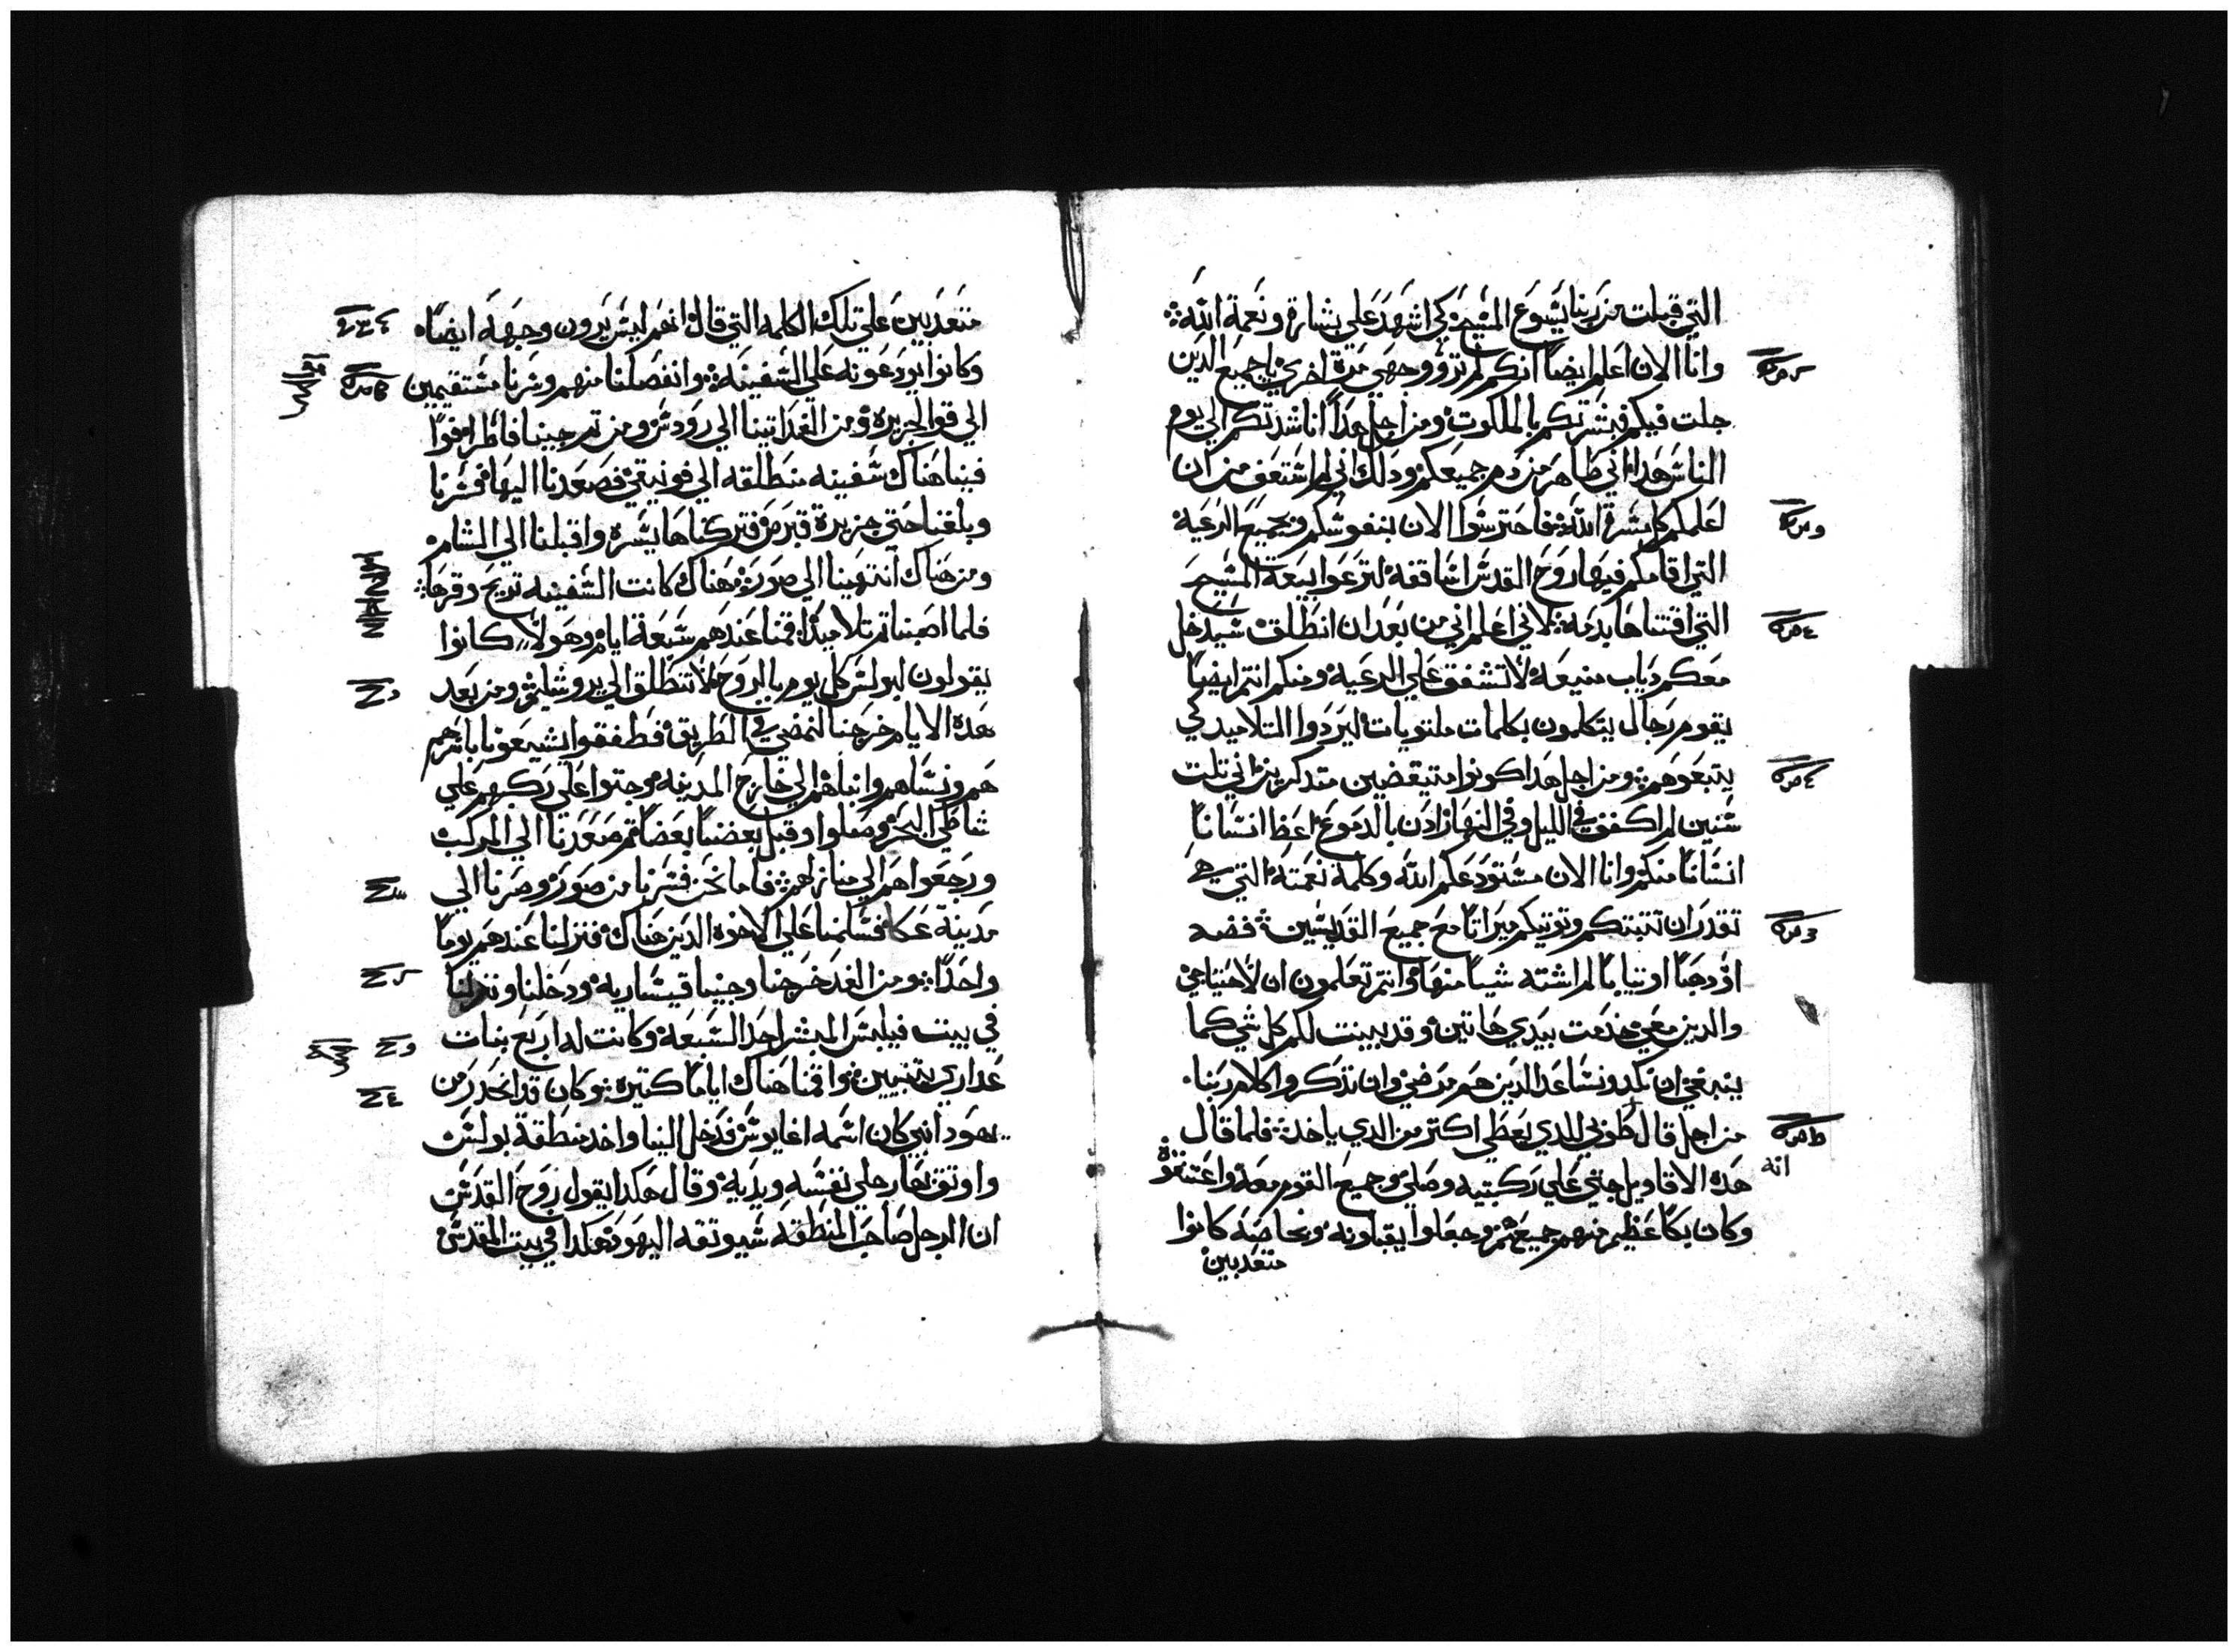 التي قبلت من ربنا يسوع المسيح كي اشهد علي بشارة ونعمة الله
وانا الان اعلم ايضا انكم لم تروو وجهي مرة اخري يا جميع الدين
جلت فيكم فبشرتكم بالملكوت ومن اجل هدا اناشدتكم الي يوم
الناس هدا اني طاهر من دم جميعكم ودلك اني لم اشتعف من ان
اعلمكم كل بشرة الله فاحترسوا الان بنفوسكم وبجميع الرعية
التي اقامكم فيها روح القدس اساقفة لترعوا بيعة المسيح
التي اقتناها بدمه لاني اعلم اني من بعد ان انطلق سيدخل
معكم دياب منيعة لا تشفق علي الرعية ومنكم انتم ايضا
يقوم رجال يتكلمون بكلمات ملتويات ليردوا التلاميد كي
يتبعوهم ومن اجل هدا كونوا متيقضين متدكرين اني تلت
سنين لم اكفف في الليل وفي النهار اد بالدموع اعظ انسانا
انسانا منكم وانا الان مستودعكم الله وكلمة نعمته التي هي
تقدر ان تتبتكم وتوتيكم ميراتا مع جميع القديسين فضه
او دهبا او تيابا لم اشته شيا منها وانتم تعلمون ان لاحتياجي
والدين معي خدمت بيدي هاتين وقد بينت لكم كل شي كما
ينبغي ان نكد ونساعد الدين هم مرضي وان ندكروا كلام ربنا
من اجل قال طوبي للدي يعطي اكتر من الدي ياخد فلما قال
انه
هده الاقاويل جتي علي ركبتيه وصلي وجميع القوم معه واعتنقوه
وكان بكا عظيم منهم جميعهم وجعلوا يقبلونه وبخاصه كانوا
متعدبين
متعدبين علي تلك الكلمه التي قال انهم ليس يرون وجهه ايضا
وكانوا يودعونه علي السفينه وانفصلنا منهم وسرنا مستقيمين
الي قوا الجزيره ومن الغد اتينا الي رودس ومن تم جينا فاطرا فوا
فينا هناك سفينه منطلقه الي فونيقي فصعدنا اليها فسرنا
وبلغنا حتي جزيرة قبرص فتركناها يسره واقبلنا الي الشام
ومن هناك انتهينا الي صور هناك كانت السفينه تريح وقرها
فلما اصبنا تم تلاميدا اقمنا عندهم سبعة ايام وهولا كانوا
يقولون لبولس كل يوم بالروح لا تنطلق الي يروشليم ومن بعد
هده الايام خرجنا لنمضي في الطريق فطفقوا يشيعونا باسرهم
هم ونساهم وابناهم الي خارج المدينه وجتوا علي ركبهم علي
شاطي البحر وصلوا وقبل بعضنا بعضا تم صعدنا الي المركب
ورجعوا هم الي منازلهم فاما نحن فسرنا من صور وصرنا الي
مدينة عكا فسلمنا علي الاخوه الدين هناك فنزلنا عندهم يوما
واحدا ومن الغد خرجنا وجينا قيساريه ودخلنا ونزلنا
في بيت فيلبس المبشر احد السبعه وكانت له اربع بنات
عداري يتنبيين واقمنا هناك اياما كتيره وكان قد انحدر من
يهودا نبي كان اسمه اغابوس فدخل الينا واخد منطقة بولس
واوتق بها رجلي نفسه ويديه وقال هكدا يقول روح القدس
ان الرجل صاحب المنطقه سيوتقه اليهود هكدا في بيت المقدس